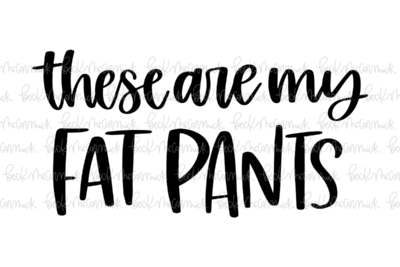 these are my
FAT PANTS